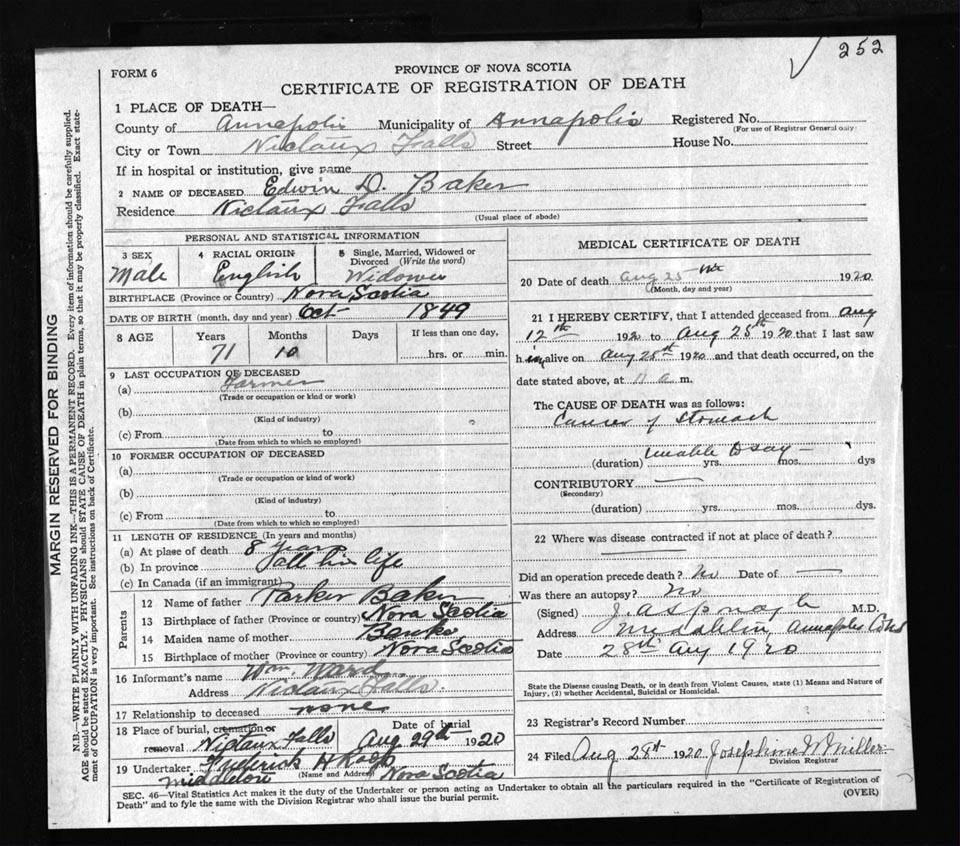 252
FORM 6
PROVINCE OF NOVA SCOTIA
CERTIFICATE OF REGISTRATION OF DEATH
1 PLACE OF DEATH—
County of Annapolis Municipality of Annapolis Registered No.
(For use of Registrar General only)
City or Town Nictaux Falls Street House No.
If in hospital or institution, give name
2 NAME OF DECEASED Edwin D. Baker
Residence Nictaux Falls
(Usual place of abode)
PERSONAL AND STATISTICAL INFORMATION
3 SEX 4 RACIAL ORIGIN 5 Single, Married, Widowed or Divorced (Write the word)
Male English Widower
BIRTHPLACE (Province or Country) Nova Scotia
DATE OF BIRTH (month, day and year) Oct 1849
8 AGE Years Months Days If less than one day,
71 10 hrs. or min.
9 LAST OCCUPATION OF DECEASED
(a) Farmer
(Trade or occupation or kind or work)
(b)
(Kind of industry)
(c) From to
(Date from which to which so employed)
10 FORMER OCCUPATION OF DECEASED
(a)
(Trade or occupation or kind of work)
(b)
(Kind of industry)
(c) From to
(Date from which to which so employed)
11 LENGTH OF RESIDENCE (In years and months)
(a) At place of death 8
(b) In province all his life
(c) In Canada (if an immigrant)
Parents
12 Name of father Parker Baker
13 Birthplace of father (Province or country) Nova Scotia
14 Maiden name of mother Banks
15 Birthplace of mother (Province or country) Nova Scotia
16 Informant's name Wm Ward
Address Nictaux Falls
17 Relationship to deceased none
18 Place of burial, cremation or removal Nictaux Falls
Date of burial Aug 29th 1920
19 Undertaker Frederick H
(Name and Address)
Middleton Nova Scotia
MEDICAL CERTIFICATE OF DEATH
20 Date of death Aug 25 1920
(Month, day and year)
21 I HEREBY CERTIFY, that I attended deceased from Aug
12th 1920 to Aug 25th 1920 that I last saw
him alive on Aug 25th 1920 and that death occurred, on the
date stated above, at 11 a m.
The CAUSE OF DEATH was as follows:
Cancer of Stomach
unable to say
(duration) yrs. mos. dys
CONTRIBUTORY
(Secondary)
(duration) yrs. mos. dys.
22 Where was disease contracted if not at place of death?
Did an operation precede death? No Date of
Was there an autopsy? No
(Signed) M.D.
Address Annapolis Co
Date 28th Aug 1920
State the Disease causing Death, or in death from Violent Causes, state (1) Means and Nature of
Injury, (2) whether Accidental, Suicidal or Homicidal.
23 Registrar's Record Number
24 Filed Aug 28th 1920 Josephine Miller
Division Registrar
SEC. 46—Vital Statistics Act makes it the duty of the Undertaker or person acting as Undertaker to obtain all the particulars required in the "Certificate of Registration of
Death" and to fyle the same with the Division Registrar who shall issue the burial permit.
(OVER)
MARGIN RESERVED FOR BINDING
N.B.—WRITE PLAINLY WITH UNFADING INK—THIS IS A PERMANENT RECORD. Every item of information should be carefully supplied.
AGE should be stated EXACTLY. PHYSICIANS should STATE CAUSE OF DEATH in plain terms, so that it may be properly classified. Exact statement
of OCCUPATION is very important. See instructions on back of Certificate.